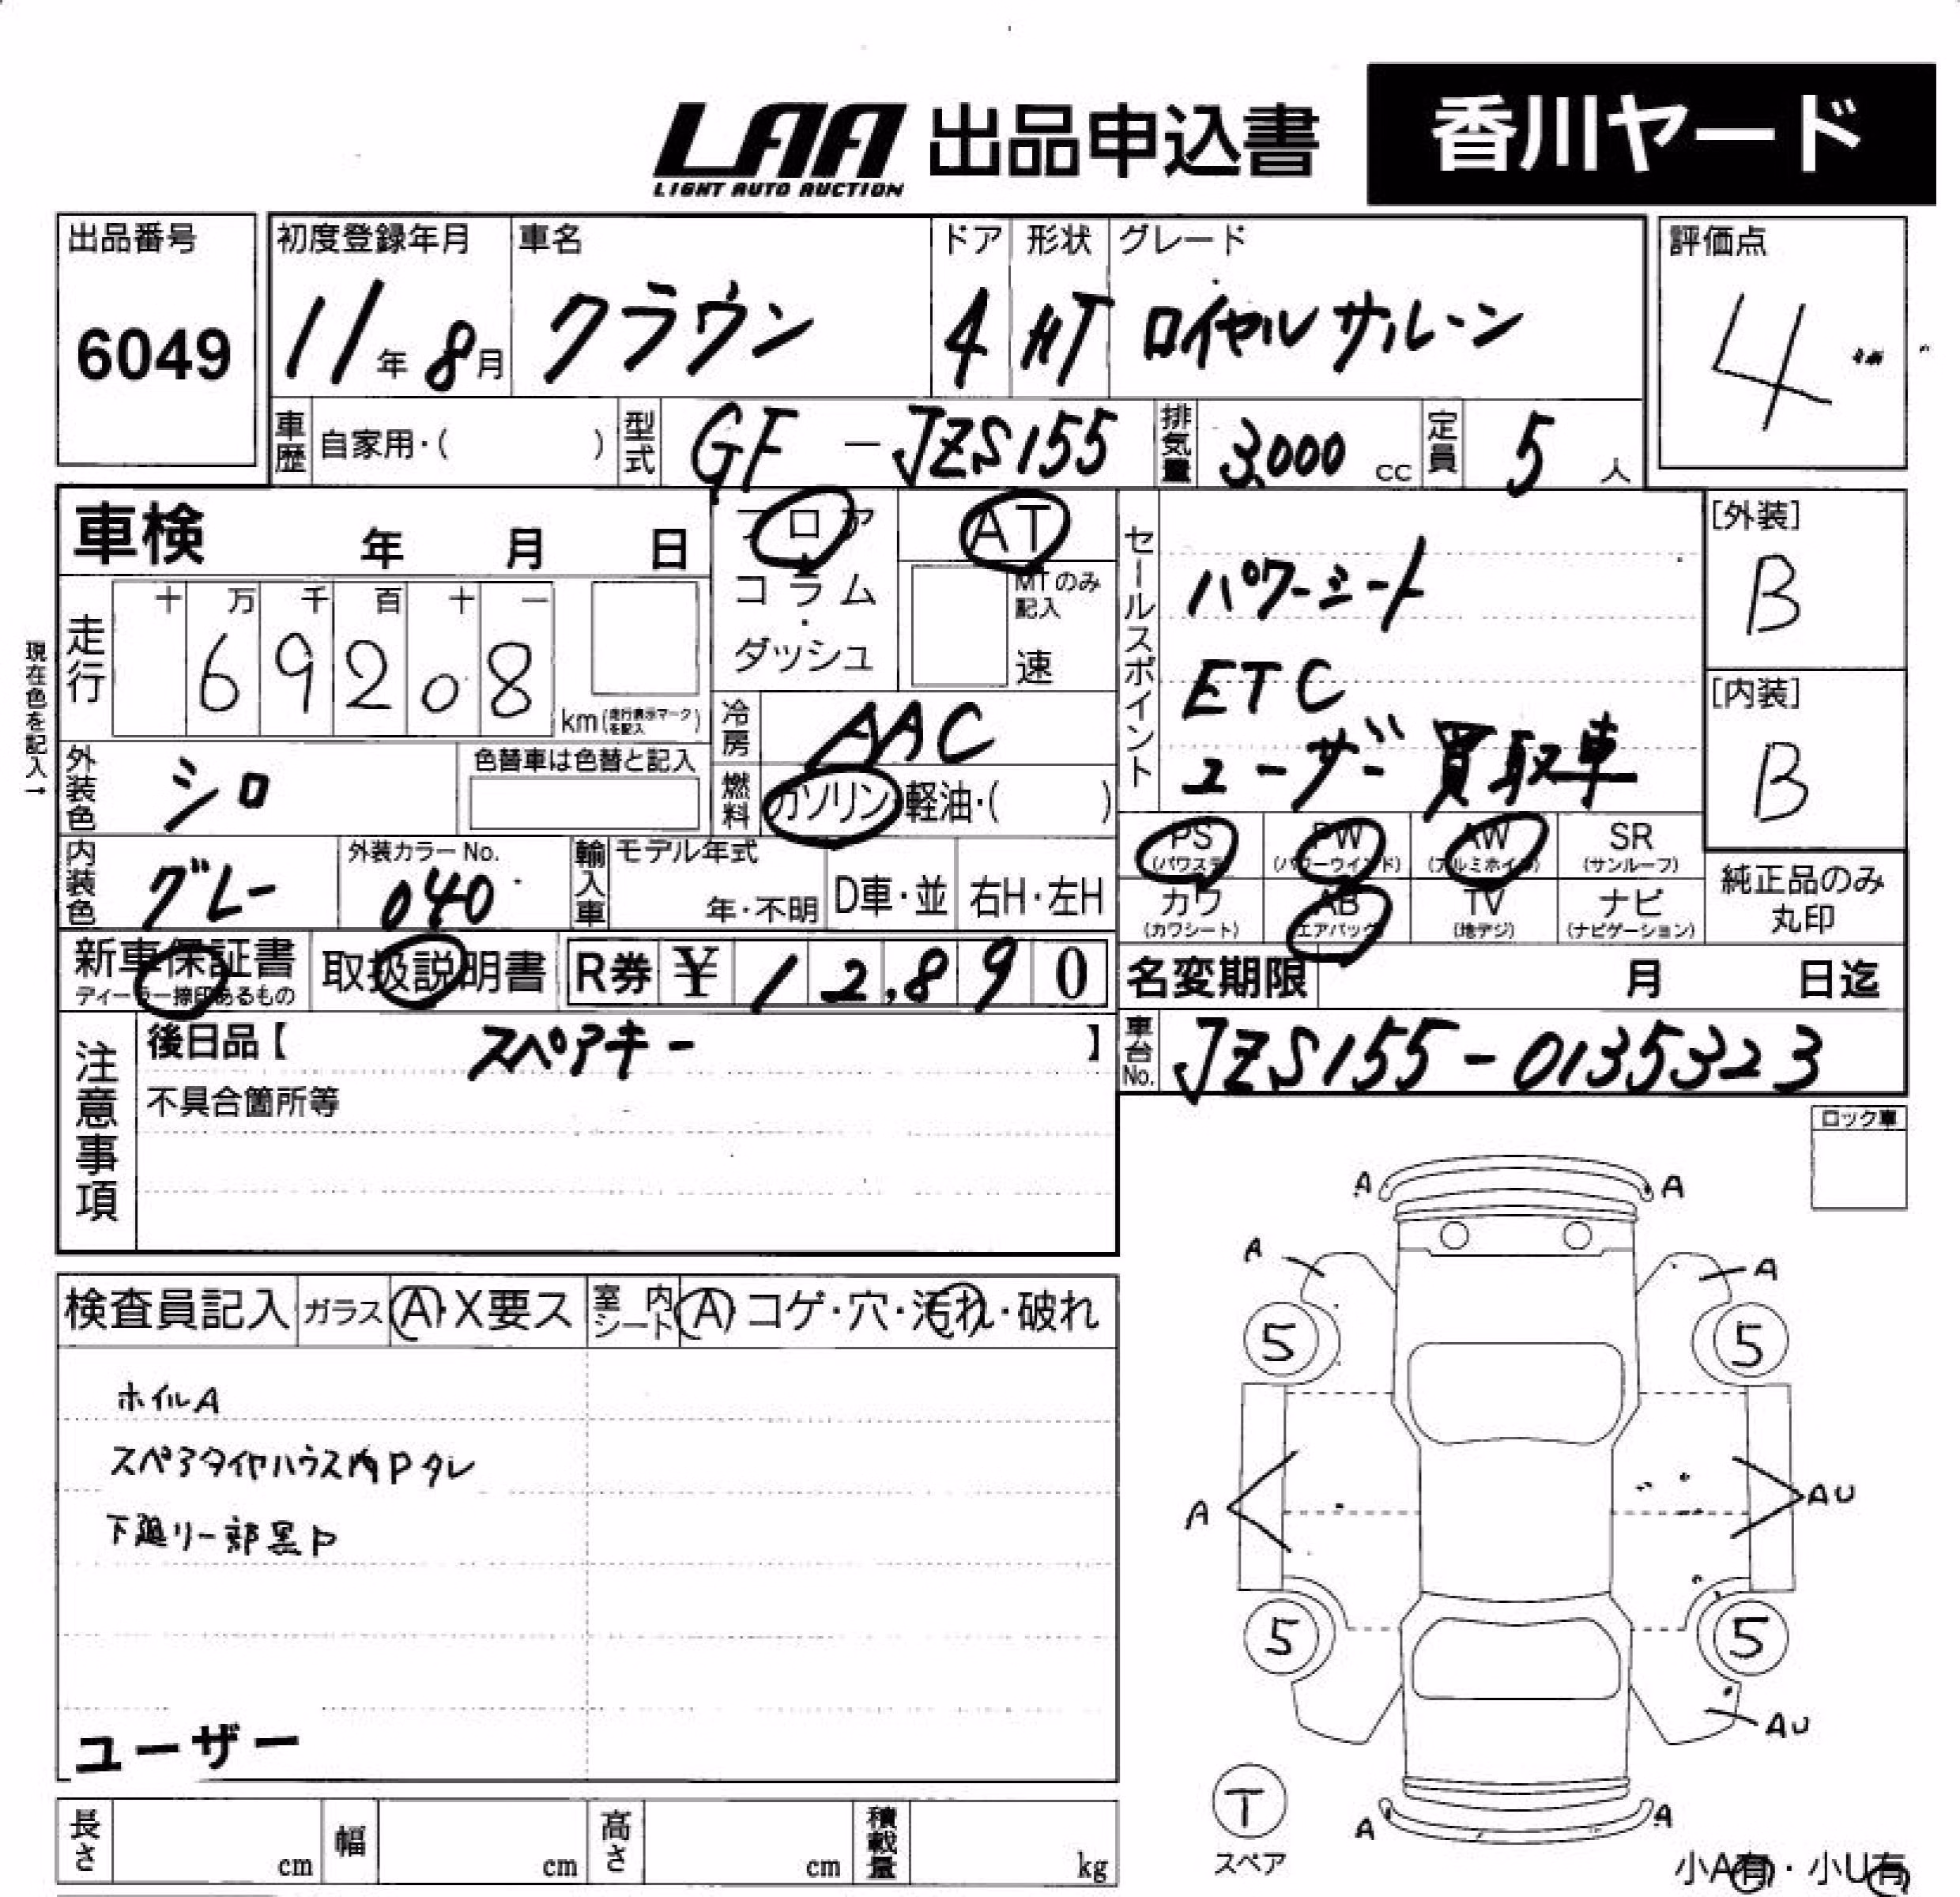 LAA 出品申込書 香川ヤード
LIGHT AUTO AUCTION
出品番号 初度登録年月 車名 ドア 形状 グレード 評価点
6049 11年 8月 クラウン 4 HT ロイヤルサルーン 4
車歴 自家用・( ) 型式 GF - JZS155 排気量 3,000 cc 定員 5 人
車検 年 月 日
フロア・コラム・ダッシュ
AT
MTのみ記入
速
セールスポイント
パワーシート
ETC
ユーザー買取車
[外装]
B
[内装]
B
現在色を記入→
走行 十 万 千 百 十 一
69208 km(走行表示マークを記入)
冷房 AAC
外装色 シロ 色替車は色替と記入
燃料 ガソリン・軽油・( )
PS (パワステ) PW (パワーウインド) AW (アルミホイル) SR (サンルーフ)
カワ (カワシート) AB (エアバック) TV (地デジ) ナビ (ナビゲーション)
純正品のみ丸印
内装色 グレー 外装カラーNo. 040 輸入車 モデル年式 年・不明 D車・並 右H・左H
新車保証書 ディーラー捺印あるもの 取扱説明書 R券 ¥ 12,890
名変期限 月 日迄
車台No. JZS155-0135323
注意事項
後日品【 スペアキー 】
不具合箇所等
ロック車
検査員記入 ガラス A・X要ス 室内シート A・コゲ・穴・汚れ・破れ
ホイルA
スペアタイヤハウス内Pタレ
下廻リ一部黒P
ユーザー
A A
A A
5 5
A AU
5 5
AU
T
スペア
A A
小A有・小U有
長さ cm 幅 cm 高さ cm 積載量 kg